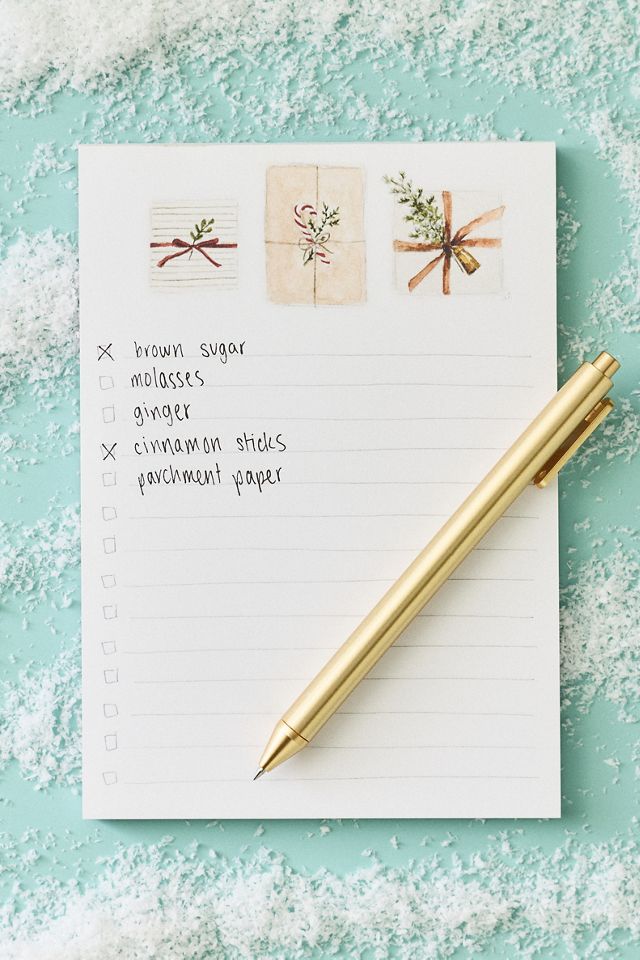 brown sugar
molasses
ginger
cinnamon sticks
parchment paper